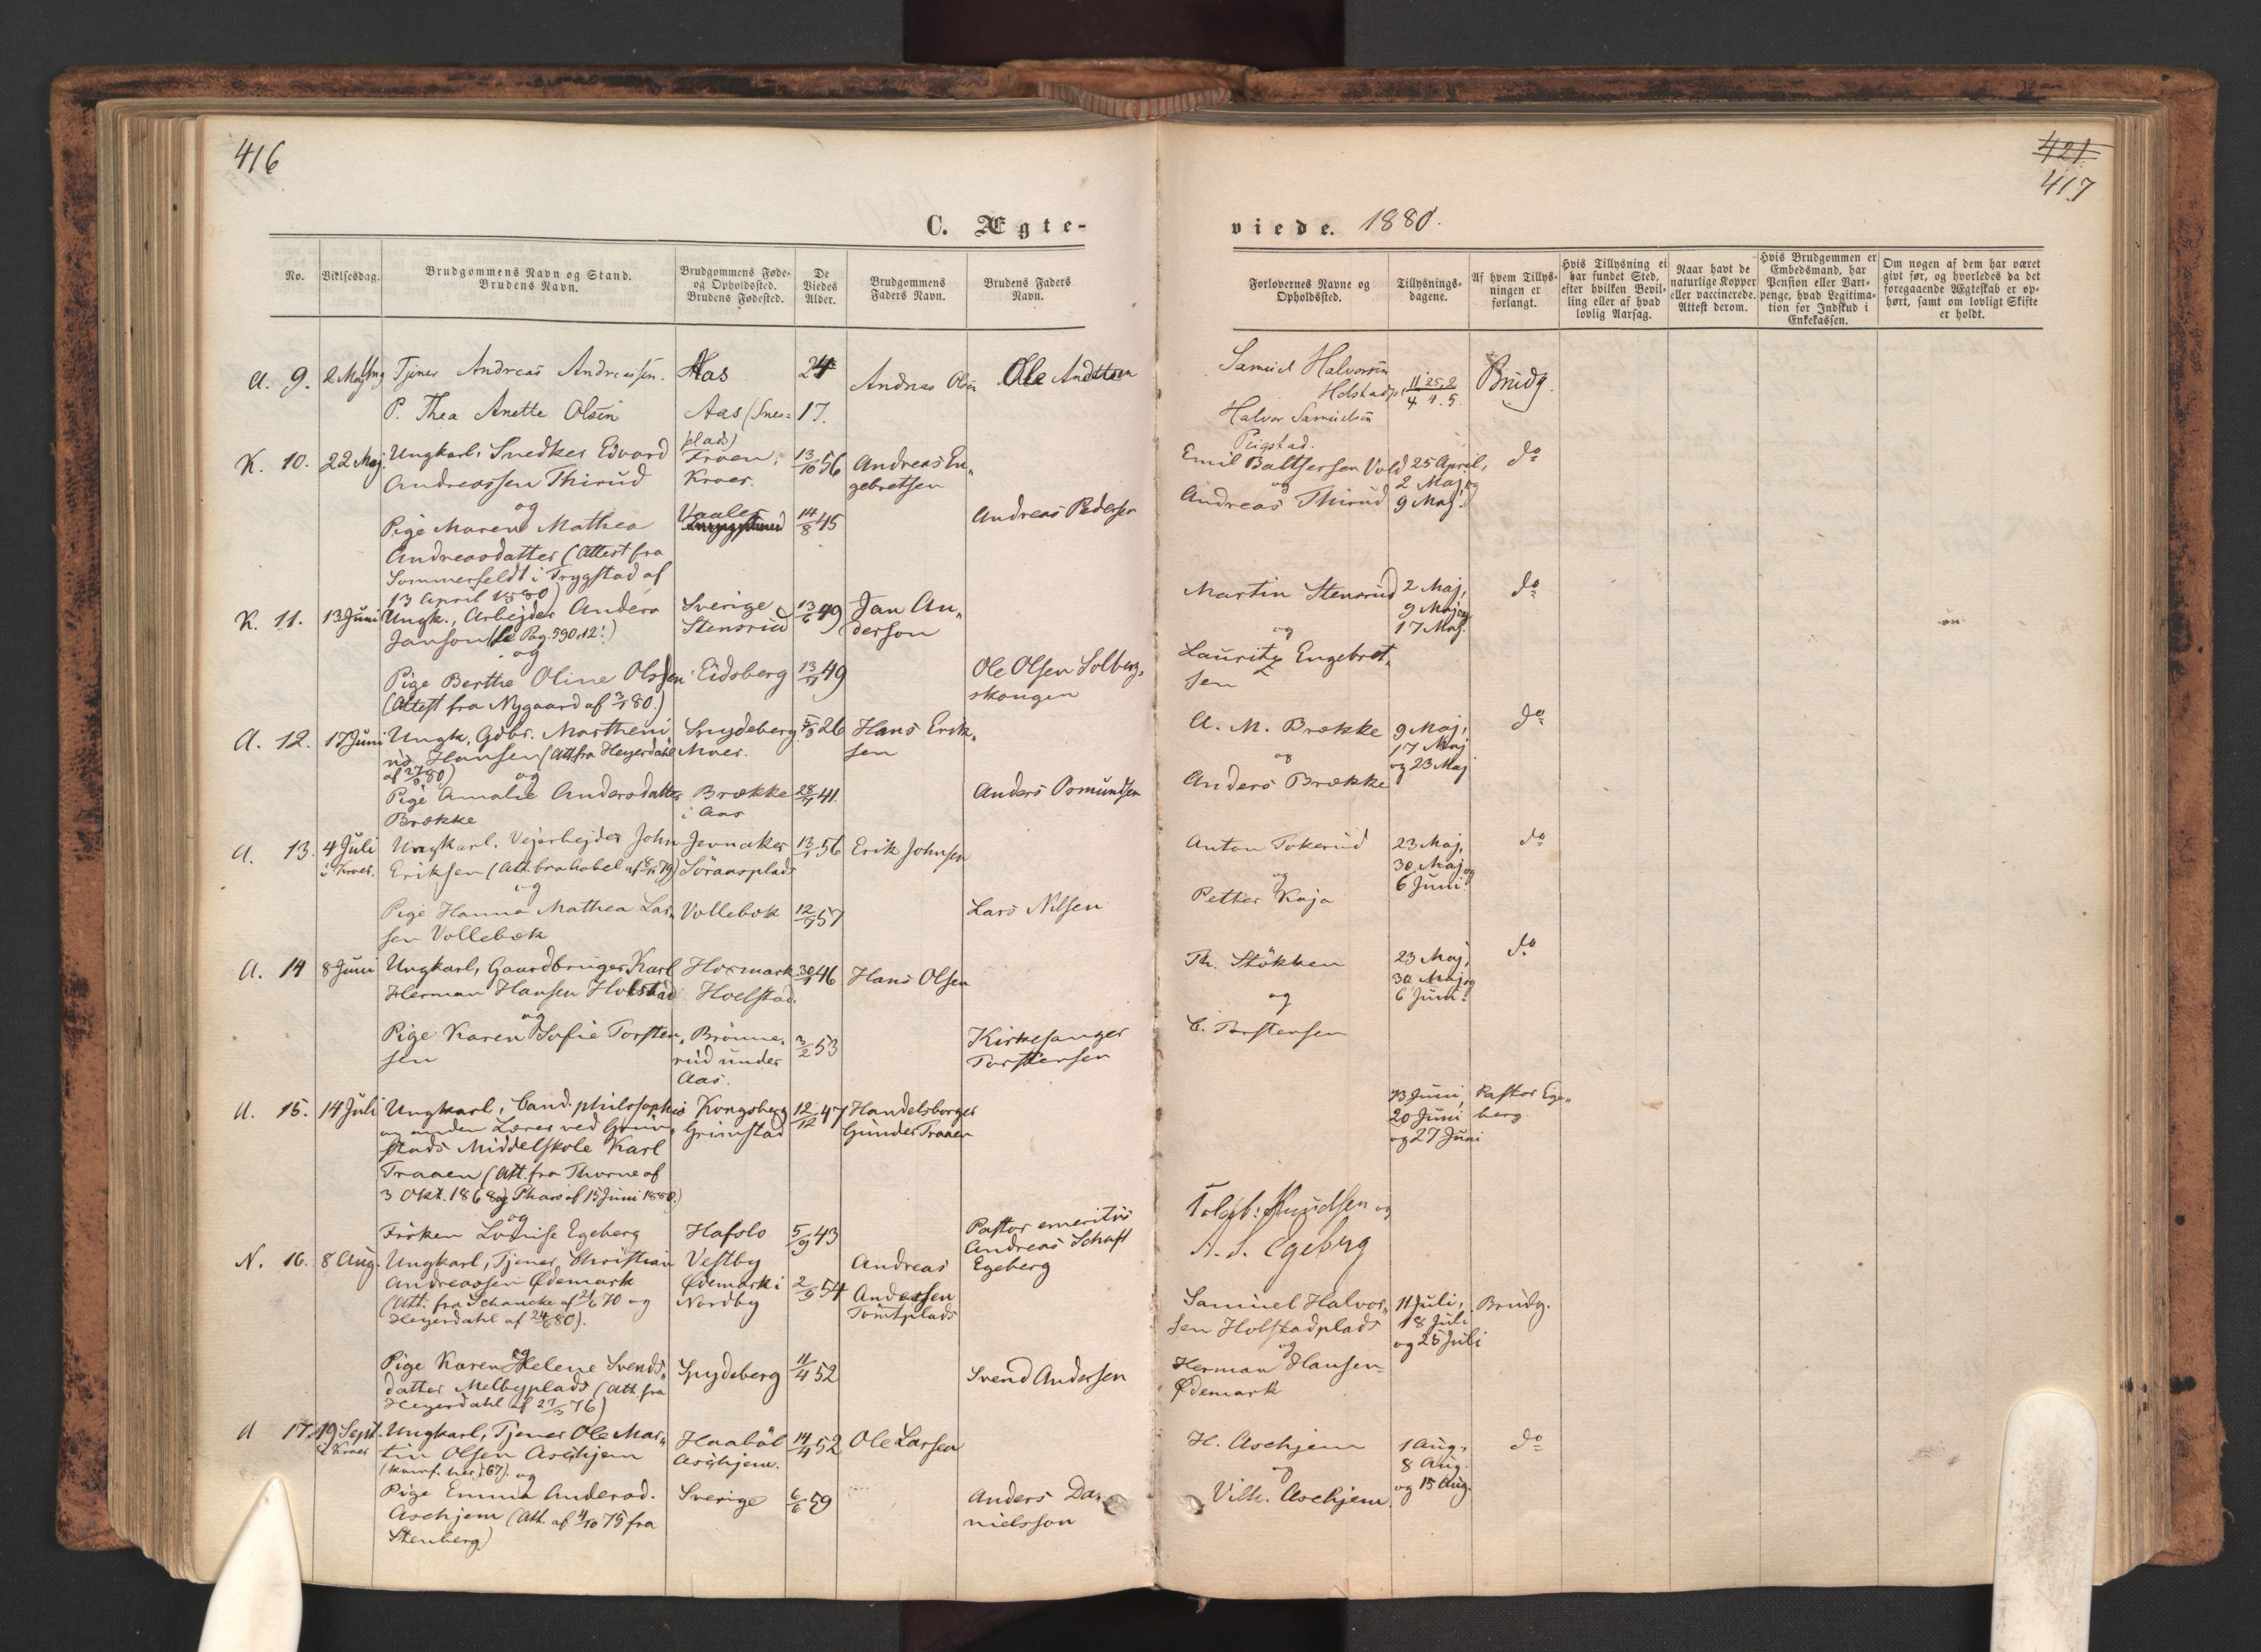 416
421
417
C. Ægte-
viede. 1880.
No.
Vielsesdag.
Brudgommens Navn og Stand.
Brudens Navn.
Brudgommens Føde-
og Opholdssted.
Brudens Fødested.
De
Viedes
Alder.
Brudgommens
Faders Navn.
Brudens Faders
Navn.
Forlovernes Navne og
Opholdssted.
Tillysnings-
dagene.
Af hvem Tillys-
ningen er
forlangt.
Hvis Tillysning ei
har fundet Sted,
efter hvilken Bevil-
ling eller af hvad
lovlig Aarsag.
Naar havt de
naturlige Kopper
eller vaccinerede.
Attest derom.
Hvis Brudgommen er
Embedsmand, har
Pension eller Vart-
penge, hvad Legitima-
tion for Indskud i
Enkekassen.
Om nogen af dem har været
givt før, og hvorledes da det
foregaaende Ægteskab er op-
hørt, samt om lovligt Skifte
er holdt.
A. 9. 2 Maj Tjener Andreas Andreassen. Aas 24 Andreas Olsen Ole
P. Thea Anette Olsen Aas (Snes=
plads) 17.
Samuel Halvorsen
Holstadpl. 11 25 2
4 4. 5. Brudg.
Halvor Samuelsen
K. 10. 22 Maj Ungkarl, Snedker Edvard Froen, 13/10 56 Andreas En„
Andreassen Thirud Kroer. gebretsen
og
Pige Maren Mathea Vaaler 14/8 45 Andreas Pedersen
Andreasdatter (Attest fra
Sommerfeldt i Trygstad af
13 April 1880)
Emil Baltsersen Vold 25 April, do
og 2 Maj, og
Andreas Thirud 9 Maj.
K. 11. 13 Juni Ungk., Arbejder Anders Sverige 13/6 49 Jan An„
Janson (se Pag. 590.12!) Stensrud derson
og
Pige Berthe Oline Olsen Eidsberg 13/11 49 Ole Olsen Solberg„
(Attest fra Nygaard af 3/1 80.) skougen
Martin Stensrud 2 Maj, do
9 Maj og
og 17 Maj.
Lauritz Engebret„
sen
A. 12. 17 Juni Ungk., Gdbr. Marthein„ Spydeberg 26 Hans Erik„
us Hansen (Att. fra Heyerdahl Moer. sen
af 80)
og
Pige Amalie Andersdatter Brække 28 41. Anders Osmundsen
Brække i Aas
A. M. Brække 9 Maj, do
17 Maj
og og 23 Maj
Anders Brække
A. 13. 4 Juli Ungkarl, Vejarbejder John Jevnaker 13 56 Erik Johnsen
i Kroer. Eriksen (Att. fra Hobøl af 79) Söraasplads
og
Pige Hanna Mathea Lar„ Vollebæk 12 57 Lars Nilsen
sen Vollebæk
Anton Tokerud 23 Maj, do
30 Maj og
og 6 Juni
Petter Kaja
A. 14 8 Juni Ungkarl, Gaardbruger Karl 30 46 Hans Olsen
Herman Hansen Holstad Hoelstad.
og
Pige Karen Sofie Torsten„ Brönne„ 3/2 53 Kirkesanger
sen rud under Torstensen
Aas.
Th. Stökken 23 Maj, do
30 Maj og
og 6 Juni.
C. Torstensen
A. 15. 14 Juli Ungkarl, Cand. philosophi Kongsberg 12/12 47 Handelsborger
og anden Lærer ved Grim„ Grimstad Gunder Traaen
stads Middelskole Karl
Traaen (Att. fra Thorne af
3 Okt. 1868 og Pharo af 15 Juni 1880.)
og
Fröken Lovise Egeberg Hafslo 5/9 43 Pastor emeritus
Andreas Schaft
Egeberg
13 Juni, Pastor Ege„
20 Juni berg.
og 27 Juni
Knudsen og
A. S. Egeberg
N. 16. 8 Aug. Ungkarl, Tjener Christian Vestby Andreas
Andreassen Ødemark Ødemark i 2/9 54 Andersen
(Att. fra Schancke af 21/6 70 og Nordby Tomtplads
Heyerdahl af 24/6 80).
og
Pige Karen Helene Svends„ Spydeberg 11/4 52 Svend Andersen
datter Melbyplads (Att. fra
Heyerdahl af 27 76)
Samuel Halvor„ 11 Juli, Brudg.
sen Holstadplads 18 Juli
og og 25 Juli
Herman Hansen
Ødemark
A 17. 19 Sept. Ungkarl, Tjener Ole Mar„ Haabøl 14/4 52 Ole Larsen
i Kroer tin Olsen Aschjem Aschjem.
og
Pige Emma Andersd. Sverige 6/6 59 Anders Da„
Aschjem (Att. af 4/10 75 fra nielsson
Stenberg)
H. Aschjem 1 Aug, do
8 Aug.
og og 15 Aug.
Vilh. Aschjem.